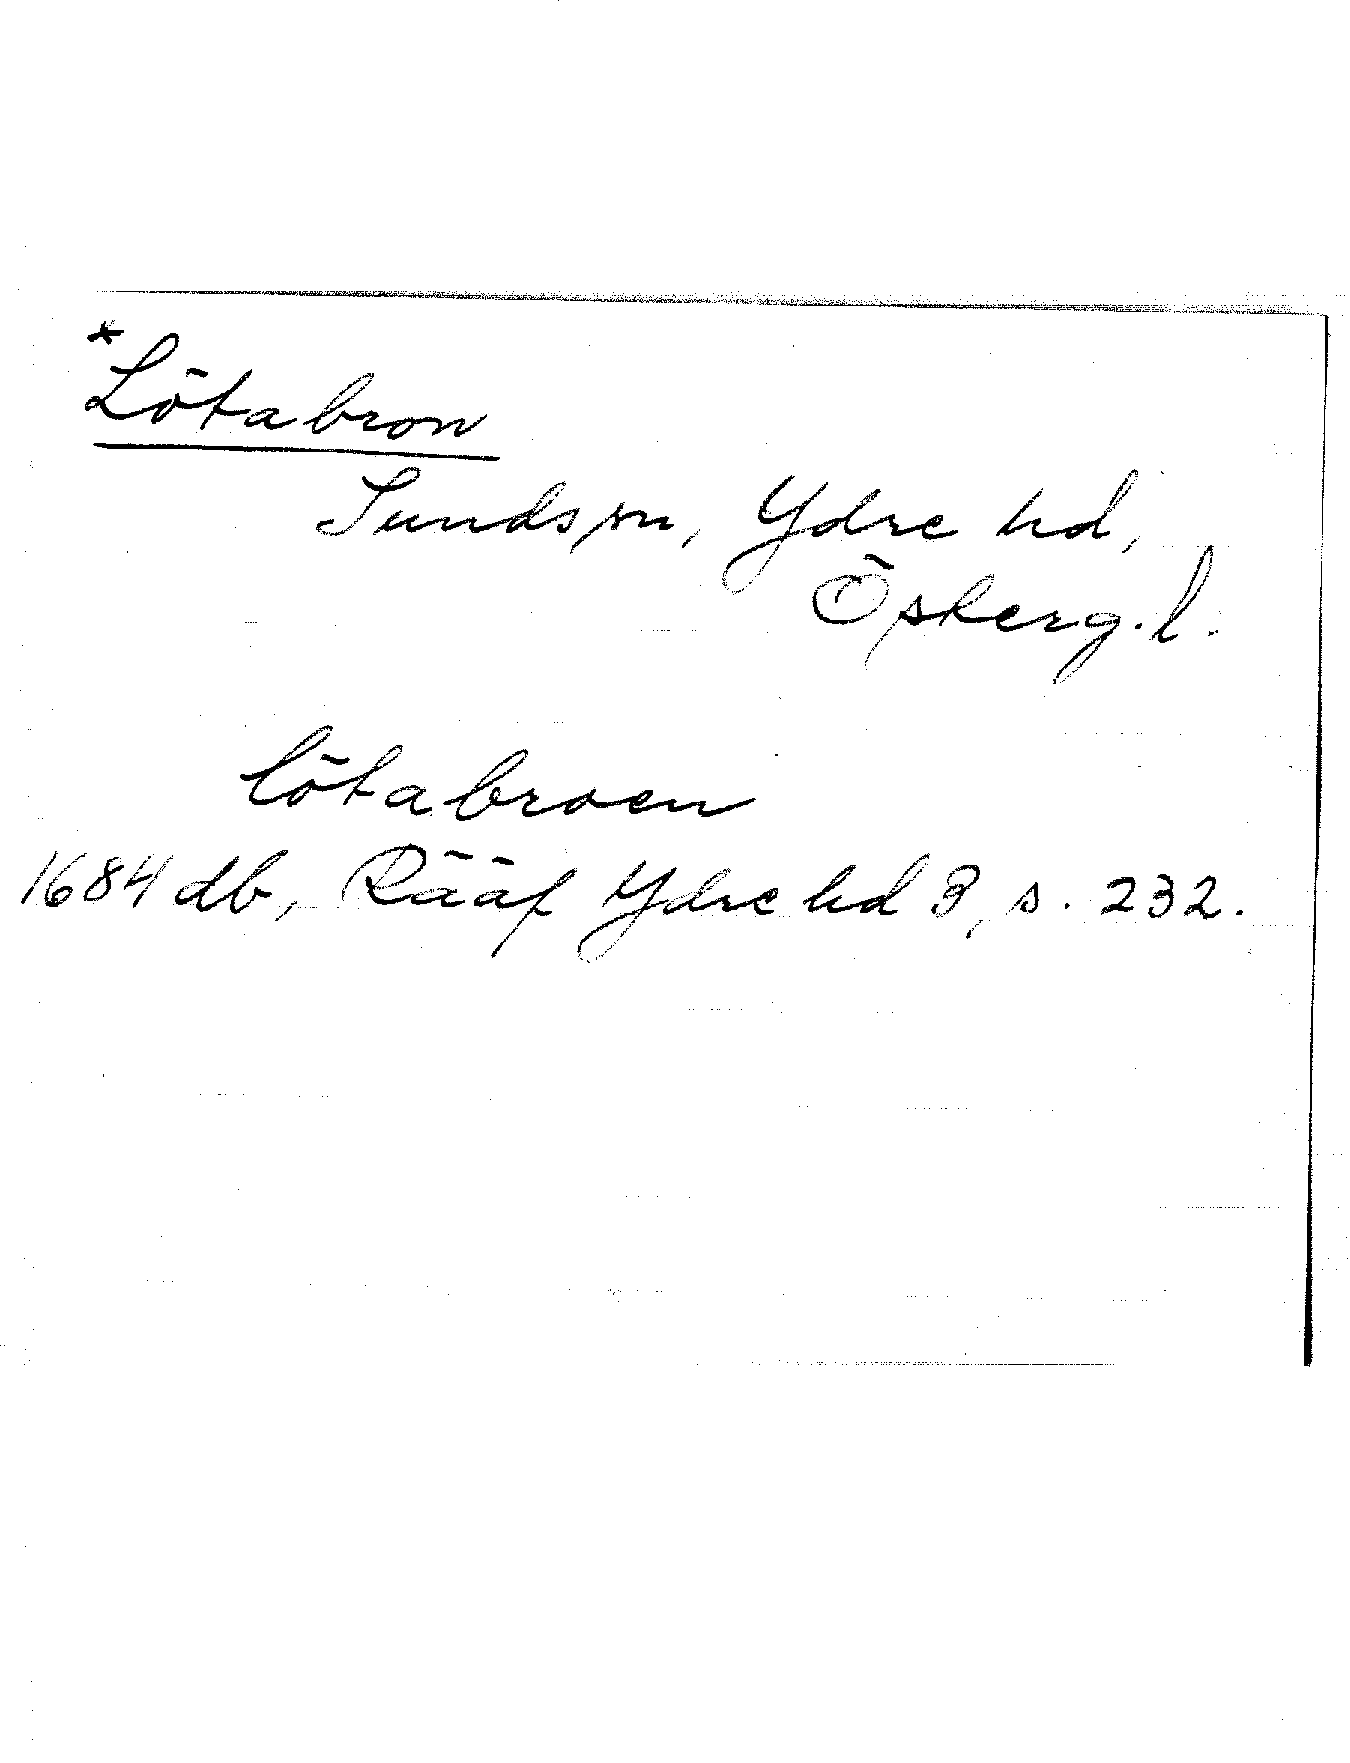 *Lötabron
Sunds sn, Ydre hd,
Österg. l.
lötabroen
1684 db, Rääf Ydre hd 3, s. 232.